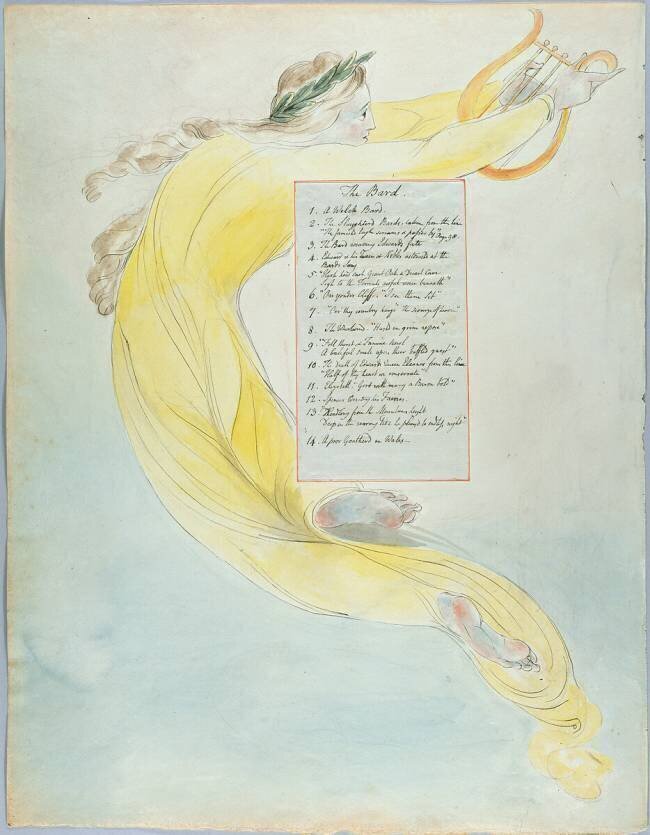 The Bard.
1. A Welch Bard.
2. The Slaughterd Bards, taken from the line
"The famishd Eagle screams & passes by" Page 98
3. The Bard weaving Edwards fate
4. Edward & his Queen & Nobles astonishd at the
Bards Song
5. "Hark how each Giant Oak & Desart Cave
Sigh to the Torrents awful voice beneath"
6. "On yonder Cliffs "I see them Sit"
7. "Oer thy country hangs The scourge of heaven"
8. The Whirlwind "Hushd in grim repose"
9. "Fell thirst & Famine scowl
A baleful smile upon their baffled guest"
10. The death of Edwards Queen Eleanor from this line
"Half of thy heart we consecrate"
11. Elizabeth "Girt with many a Baron bold"
12. Spenser Creating his Fairies.
13. "Headlong from the Mountains height
Deep in the roaring tide he plungd to endless night"
14. A poor Goatherd in Wales.